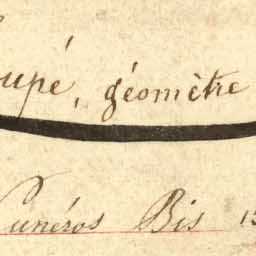 upé, géomètre
Numéros Bis 15